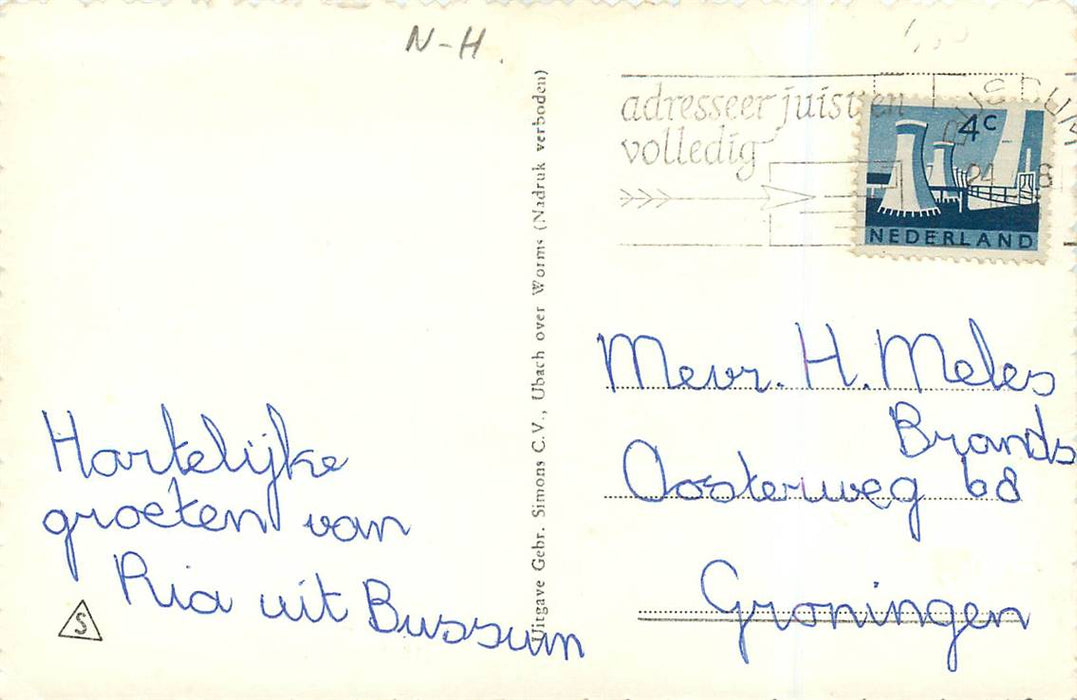 N-H.
adresseer juist en
volledig
BUSSUM
4c
NEDERLAND
Uitgave Gebr. Simons C.V., Ubach over Worms (Nadruk verboden)
Hartelijke
groeten van
Ria uit Bussum
S
Mevr. H. Meles
Brands
Oosterweg 68
Groningen